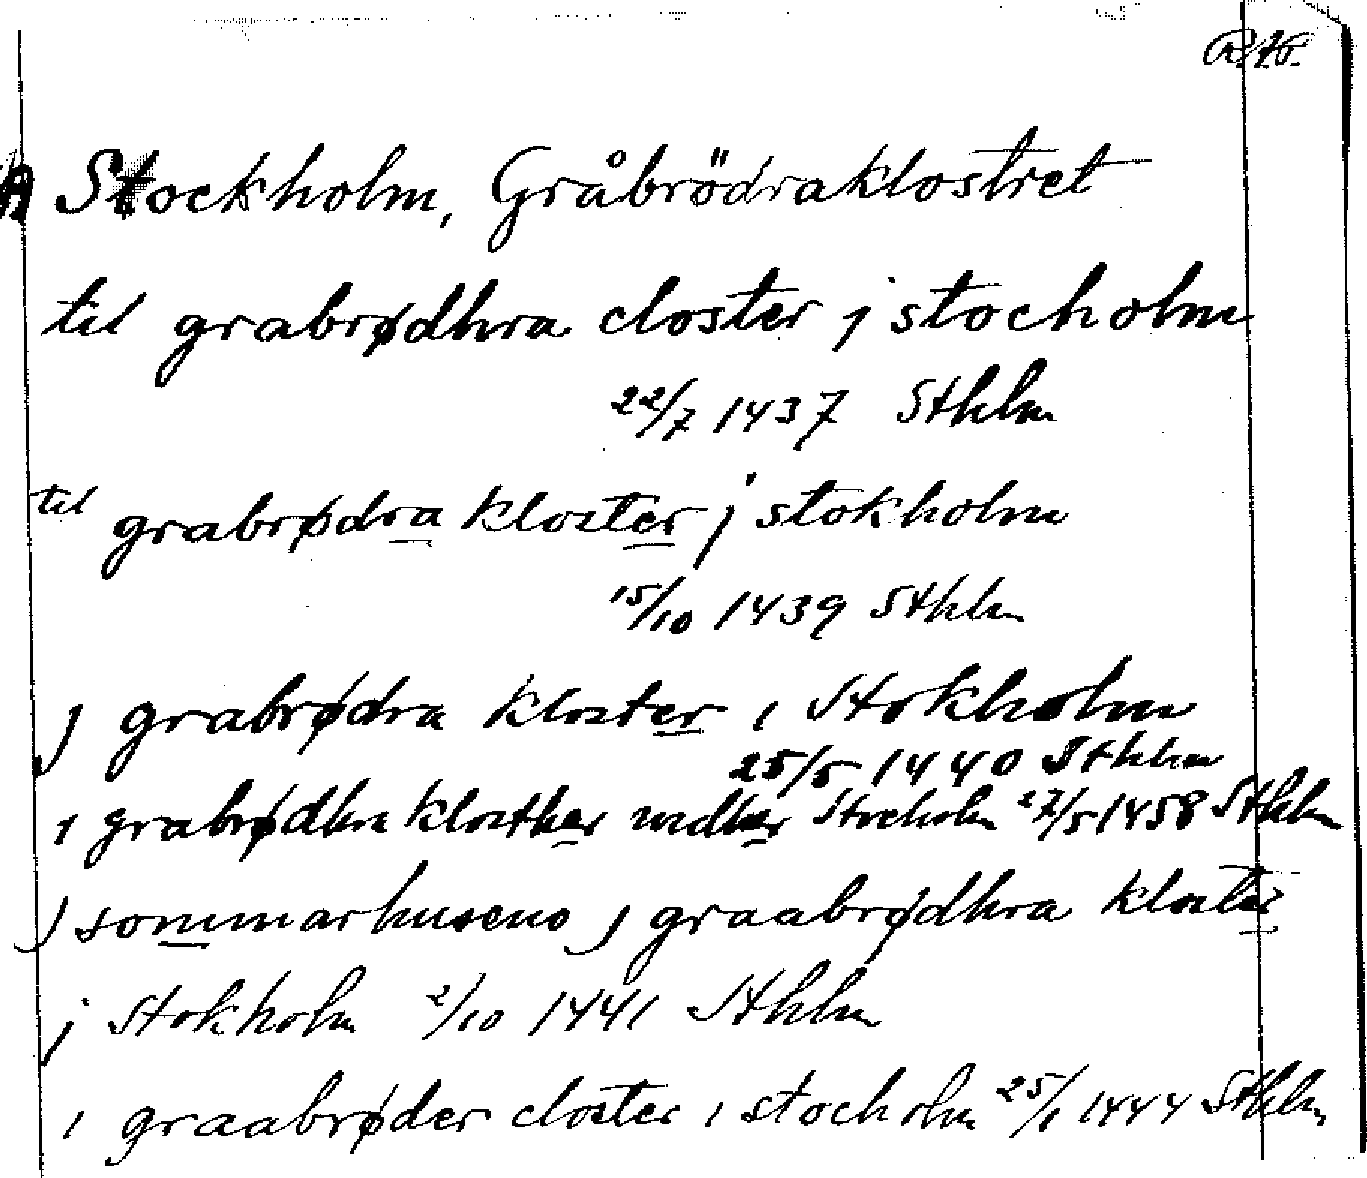 RAP.
Stockholm, Gråbrödraklostret
til grabrødhra closter j stocholm
22/7 1437 Sthlm
til grabrødra kloster j stokholm
15/10 1439 Sthlm
j grabrødra kloster i Stokholm
25/5 1440 Sthlm
i grabrødhra klosther widher Stocholm 27/5 1458 Sthlm
j sommarhuseno j graabrødhra kloster
j Stokholm 2/10 1441 Sthlm
i graabrøder closter i stocholm 25/1 1444 Sthlm